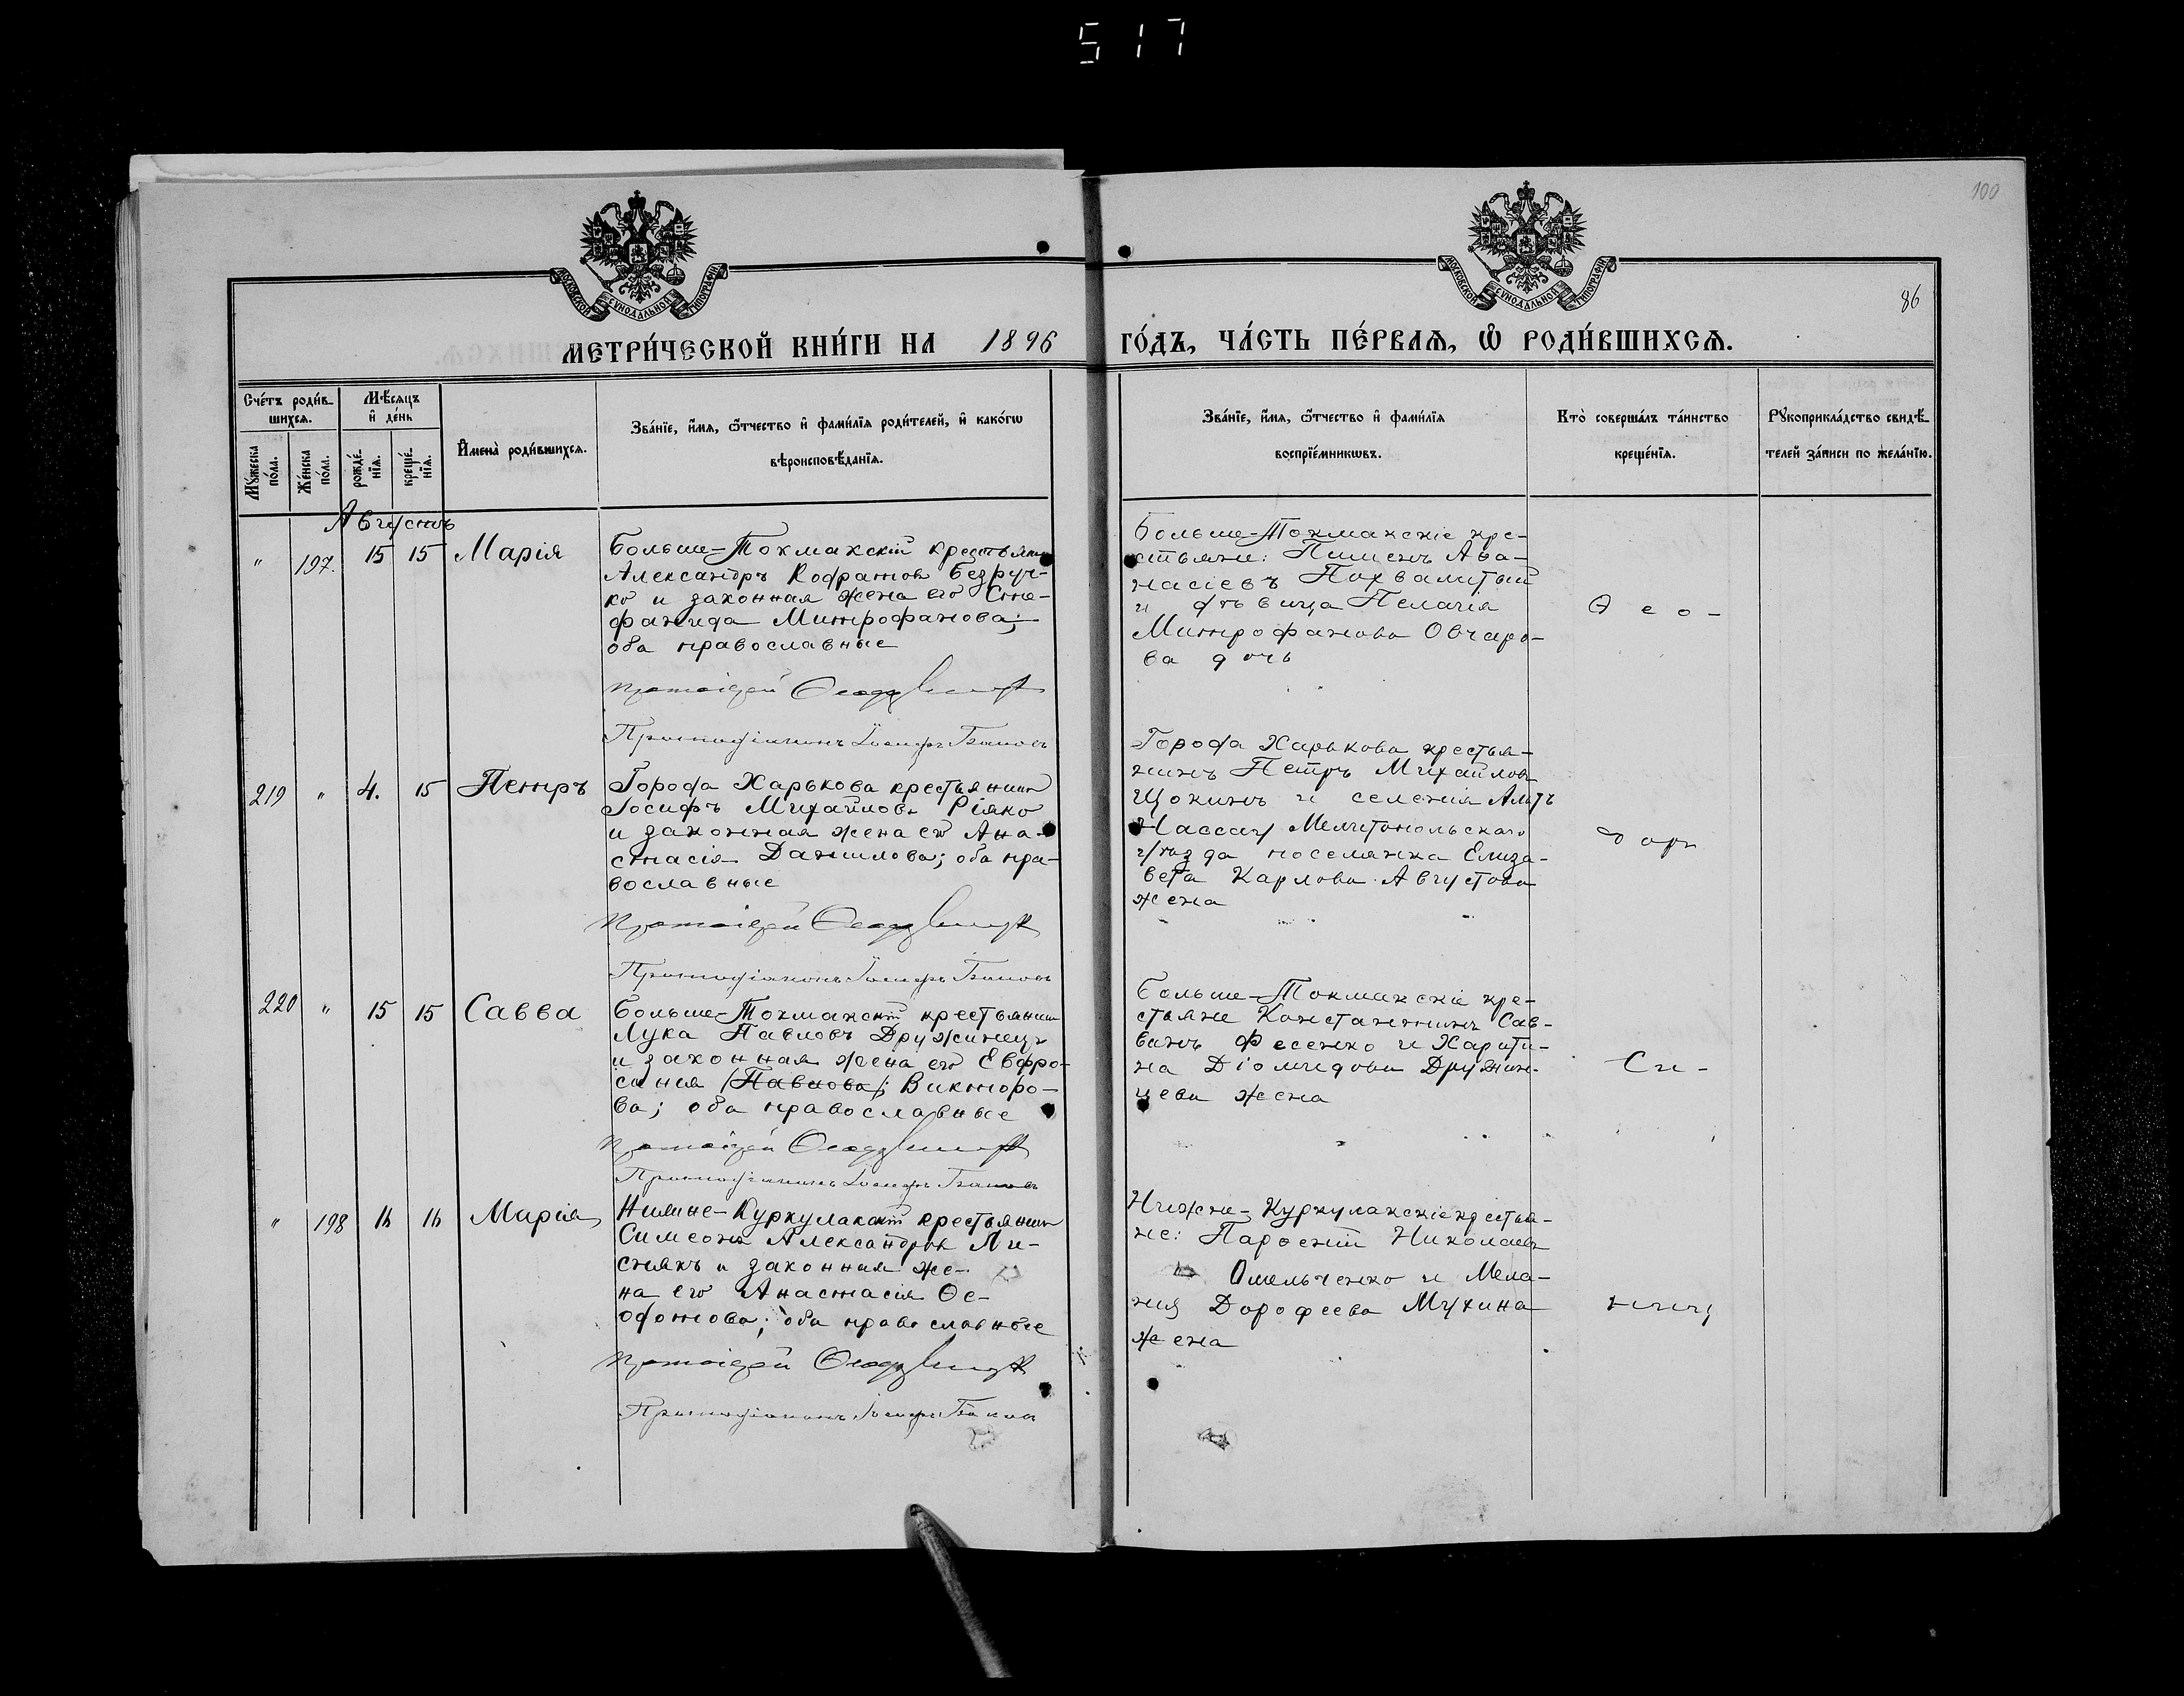 517
100
86
МОСКОВСКОЙ СѴНОДАЛЬНОЙ ТИПОГРАФІИ
МОСКОВСКОЙ СѴНОДАЛЬНОЙ ТИПОГРАФІИ
МЕТРИ́ЧЕСКОЙ КНИ́ГИ НА 1896 ГО́ДЪ, ЧА́СТЬ ПЕ́РВАѦ, Ѡ҆ РОДИ́ВШИХСѦ.
Сче́тъ роди́в-
шихсѧ.
Мѣ́сѧцъ
и҆ де́нь
Мꙋ́жеска
по́ла.
Же́нска
по́ла.
рожде́-
нїѧ.
креще́-
нїѧ.
И҆мена̀ роди́вшихсѧ.
Зва́нїе, и҆́мѧ, ѻ҆́тчество и҆ фами́лїѧ роди́телей, и҆ како́гѡ
вѣроисповѣ́данїѧ.
Зва́нїе, и҆́мѧ, ѻ҆́тчество и҆ фами́лїѧ
воспрїе́мникѡвъ.
Кто̀ соверша́лъ та́инство
креще́нїѧ.
Рꙋкоприкла́дство свидѣ́-
телей за́писи по жела́нїю.
Августъ
" 197. 15 15 Марія
Больше-Токмакскій крестьянин
Александръ Безруч-
ко и законная жена его Сте-
фанида Митрофанова;
оба православные
Протоіерей
Протодіаконъ Іосифъ
Больше-Токмакскіе кре-
стьяне: Пименъ Аѳа-
насіевъ Похвалитый
и дѣвица Пелагія
Митрофанова Овчаро-
ва дочь
Ѳео-
219 " 4. 15 Петръ
Города Харькова крестьянинъ
Іосифъ Михайловъ Ріяко
и законная жена его Ана-
стасія Данилова; оба пра-
вославные
Протоіерей
Протодіаконъ Іосифъ
Города Харькова крестья-
нинъ Петръ Михайловъ
Щокинъ и селенія Альтъ
Нассау Мелитопольскаго
уѣзда поселянка Елиза-
вета Карлова Августова
жена
доръ
220 " 15 15 Савва
Больше-Токмакскій крестьянин
Лука Павловъ Дружинецъ
и законная жена его Евфро-
синія (Павлова); Викторо-
ва; оба православные
Протоіерей
Протодіаконъ Іосифъ
Больше-Токмакскіе кре-
стьяне Константинъ Сав-
винъ Фесенко и Харити-
на Діомидова Дружин-
цева жена
Си-
" 198 16 16 Марія
Нижне-Куркулакскій крестьянин
Симеонъ Александровъ Ли-
снякъ и законная же-
на его Анастасія Ѳе-
офанова; оба православные
Протоіерей
Протодіаконъ Іосифъ
Нижне-Куркулакскіе крестья-
не: Парѳеній Николаевъ
Омельченко и Мела-
нія Дорофеева Мухина
жена